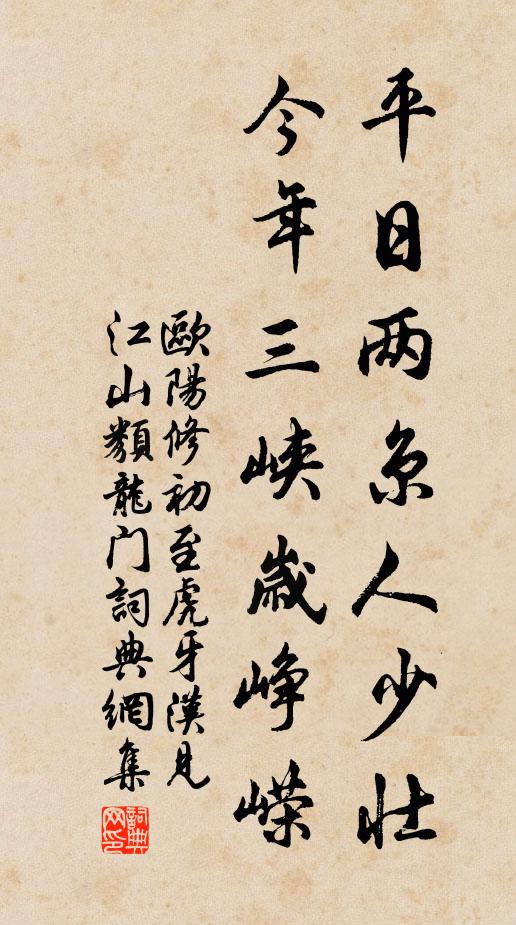 平日两京人少壮
今年三峡歲峥嵘
歐陽修初至虎牙漢見
江山類龍门詞典網集
詞典网印